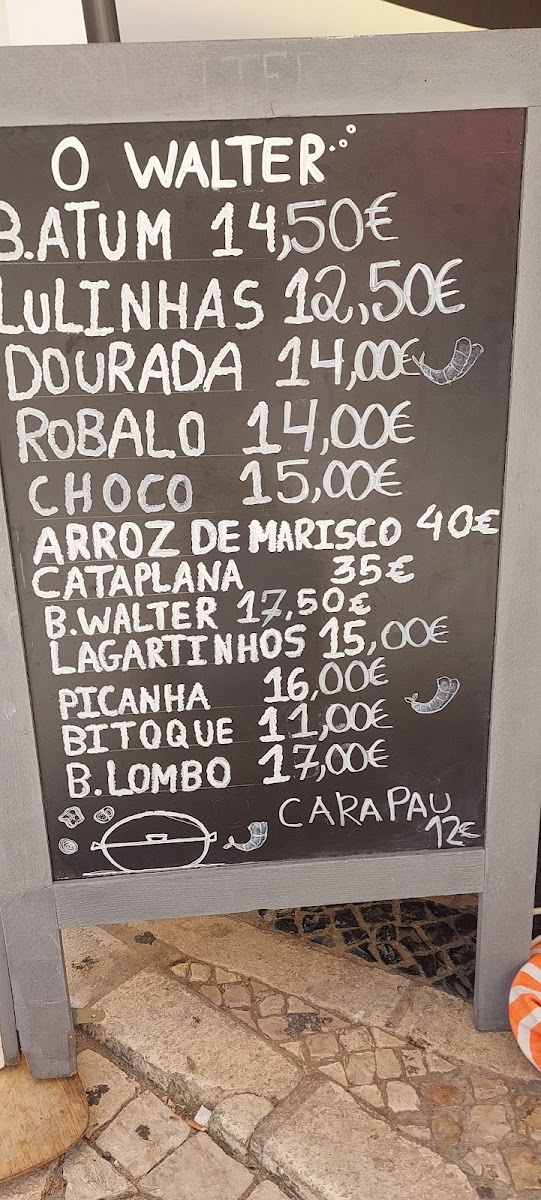 O WALTER
B.ATUM 14,50€
LULINHAS 12,50€
DOURADA 14,00€
ROBALO 14,00€
CHOCO 15,00€
ARROZ DE MARISCO 40€
CATAPLANA 35€
B.WALTER 17,50€
LAGARTINHOS 15,00€
PICANHA 16,00€
BITOQUE 11,00€
B.LOMBO 17,00€
CARAPAU
12€